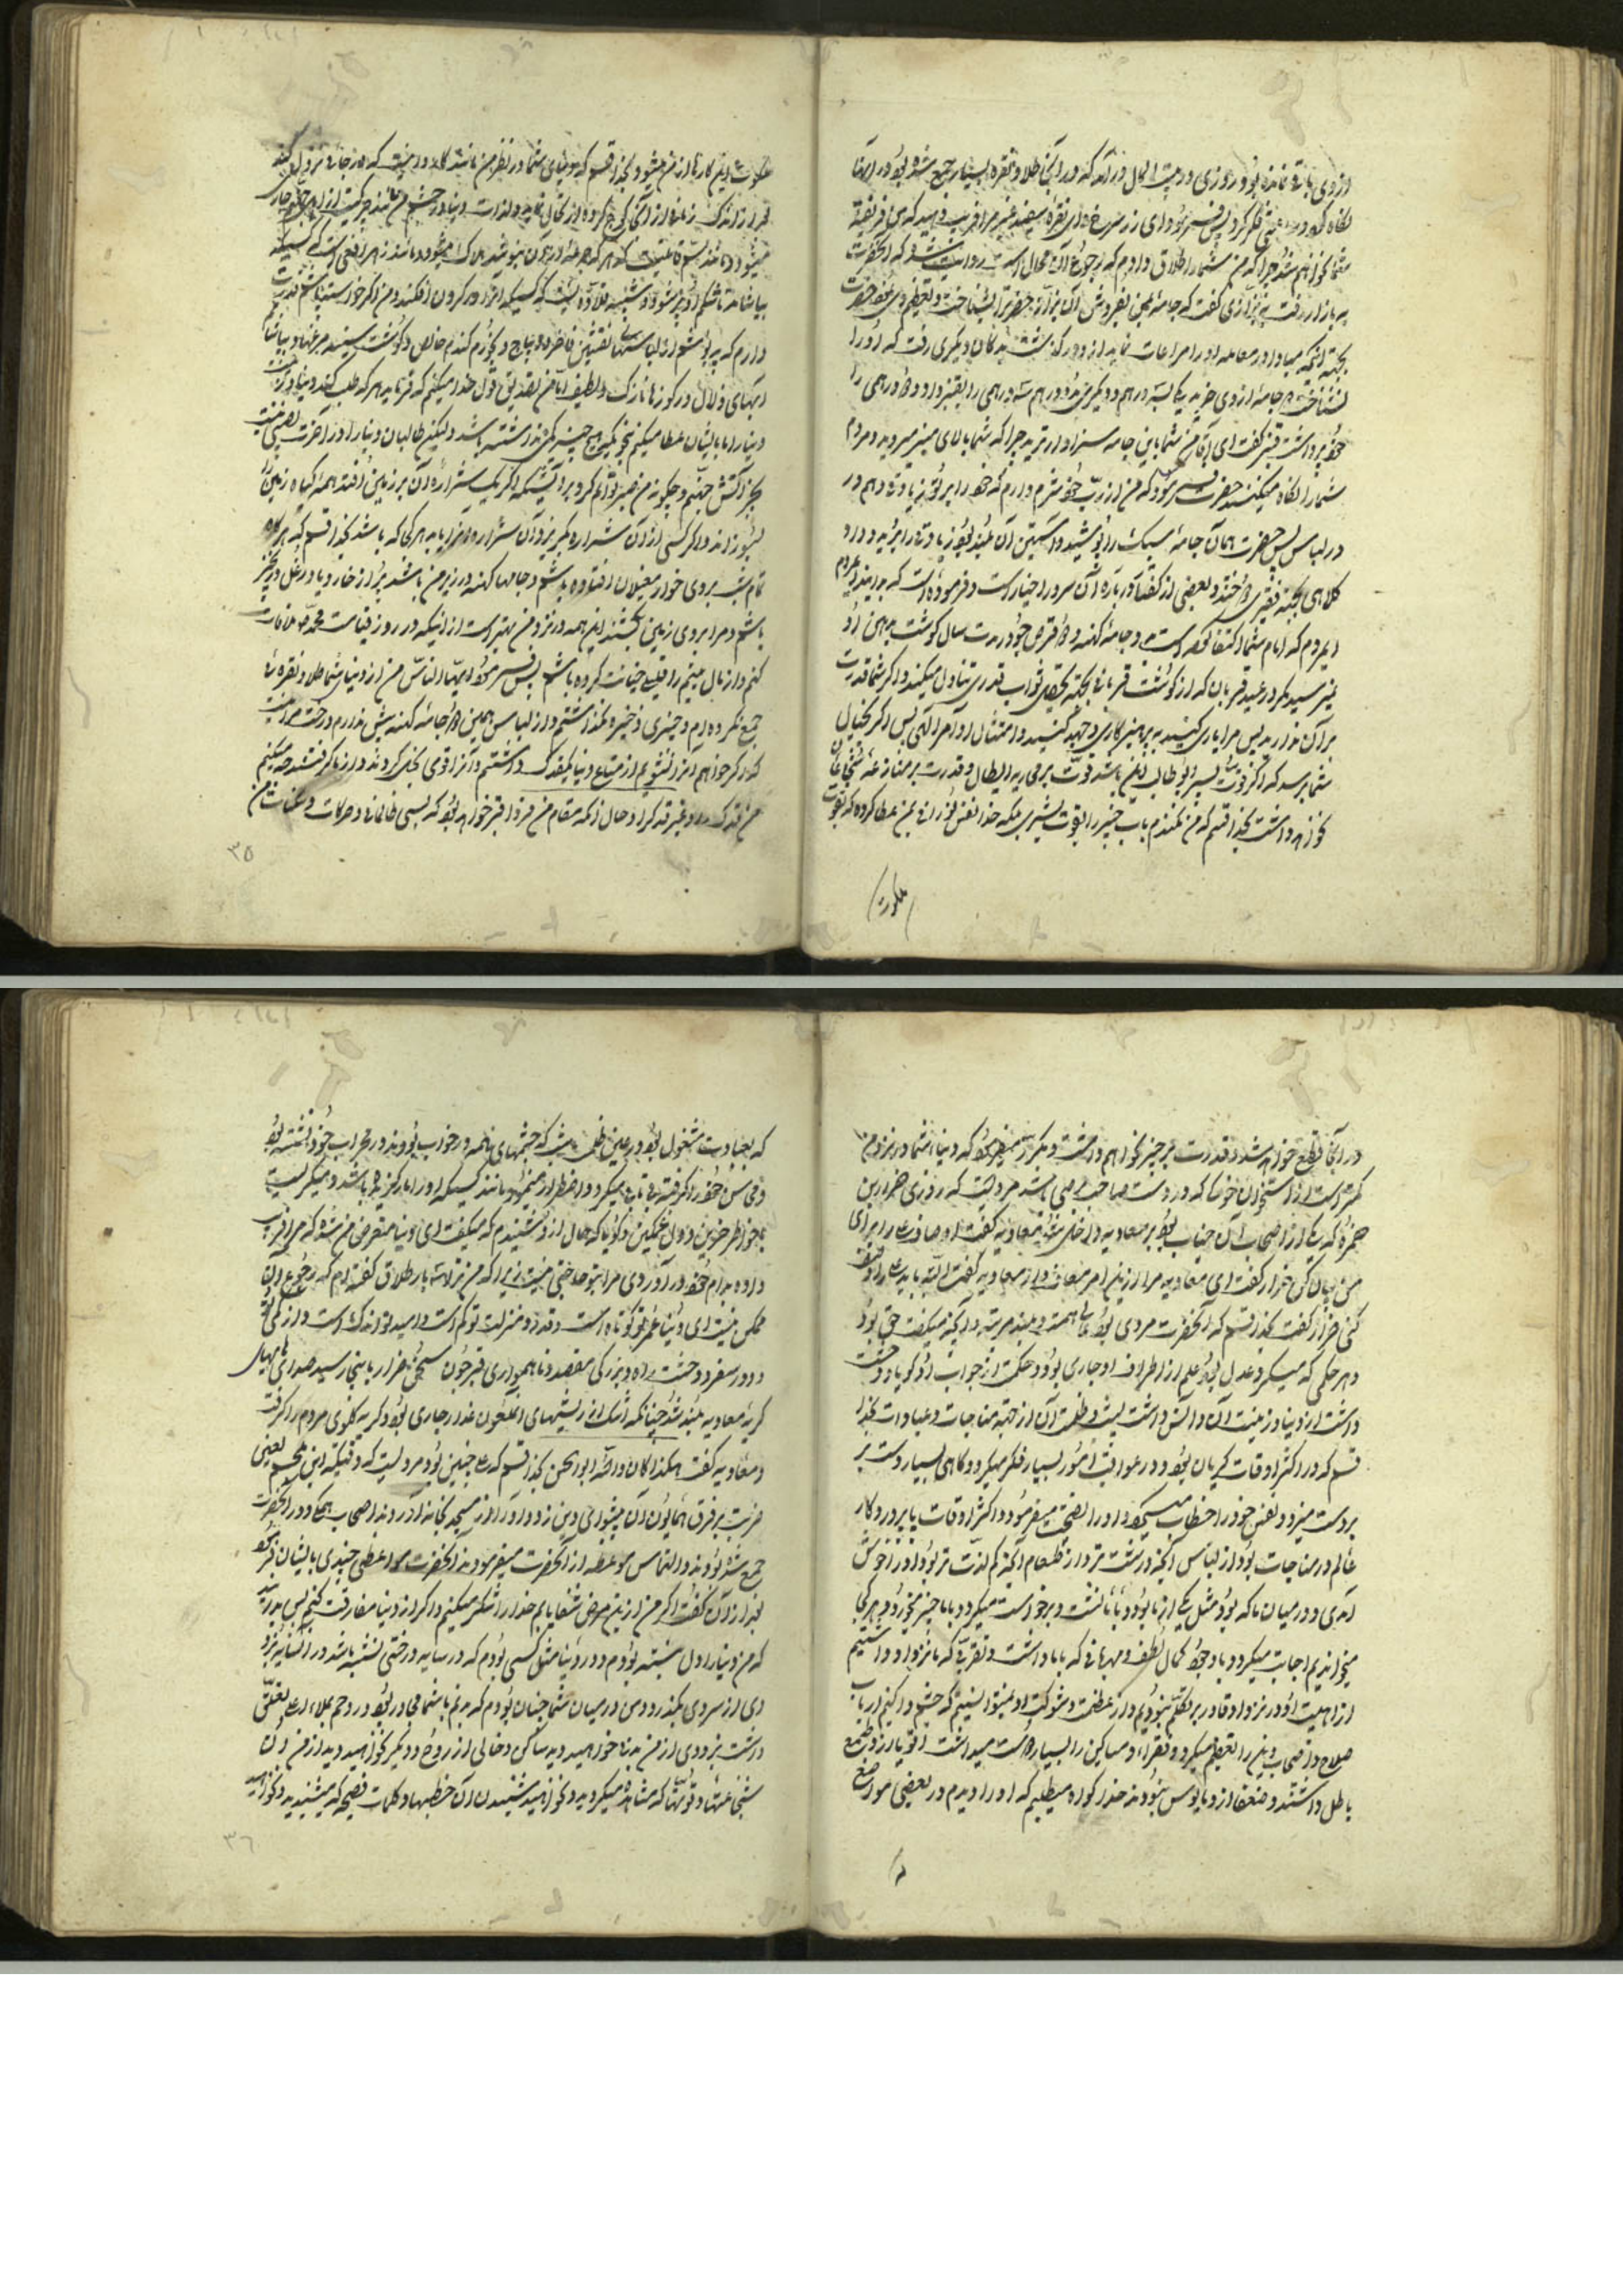 از وی باقی نماند بود و روزی در بیت المال درآمد که در آنجا طلا و نقره بسیار جمع شده بود در آنها
نگاه کرد و ساعتی فکر کرد پس فرمود ای زر سرخ و ای نقره سفید غیر مرا فریب دهید که من فریفته
شما نخواهم شد چرا که من شما را طلاق دادم که رجوع آن محال است روایت شده که آنحضرت
به بازار رفت به بزازی گفت که جامه بمن بفروش آن بزاز حضرت را شناخت و تعظیم
بجهة آنکه مبادا در معامله او را مراعات نماید از او در گذشت به دکان دیگری رفت که او را
نشناخت دو جامه از وی خرید یکی بسه درهم و دیگری بدو درهم سه درهمی را بقنبر داد و دو درهمی را
خود برداشت قنبر گفت ای آقای من شما باین جامه سزاوارترید چرا که شما بالای منبر میروید و مردم
شما را نگاه میکنند حضرت فرمود که من از رب خود شرم دارم که خود را بر تو زیادتی دهم در
در لباس پس حضرت همان جامه سبک را پوشید و آستین آن بلند بود زیادتی را برید و داد
کلاهی بجهة فقیری دوختند و بعضی از گفتار دربار آن سرور اخیار است و فرموده است که بدانید ای مردم
ای مردم که امام شما اکتفا کرده است بدو جامه کهنه و دو قرص جو و در مدت سال گوشت بدهن او
نمیرسید مگر در عید قربان که از گوشت قربانی بجهة تحصیل ثواب قدری تناول میکند و اگر شما قدرت
بر آن ندارید پس مرا یاری کنید به پرهیزکاری و جهد کنید در امتثال اوامر الهی پس اگر بخیال
شما برسد که اگر قوت پسر ابوطالب این باشد قوت بر محاربه ابطال و قدرت بر منازعه شجاعان
نخواهد داشت بخدا قسم که من نکندم باب خیبر را بقوت بشری بلکه خدا نفس نورانی بمن عطا کرده که بقوت
ملکوت
ملکوت این کارها از من میشود و بخدا قسم که دنیای شما در نظر من مانند کاروانی است که در جائی نزول کند
بیاشامد تا شکم او پر شود و شبیه بقلاده ایست که کسیکه او را در گردن افکند و من اگر خواسته باشم قدرت
دارم که بپوشم از لباسهای نفیس فاخره و دیباج و بخورم گندم خالص و گوشت سینه مرغها و بیاشامم
آبهای زلال در کوزه‌های نازک و لطیف اما من تصدیق قول خدا میکنم که فرمایید هر که طلب کند دنیا و زینت
دنیا را ما بایشان عطا میکنیم نحویکه هیچ چیز کم نداشته باشد ولیکن طالبان دنیا را در آخرت نصیبی نیست
بجز آتش جهنم و چگونه من صبر توانم کرد بر آتشی که اگر یک شراره آن بر زمین افتد همه گیاه زمین را
بسوزاند و اگر کسی از آن شراره بگریزد آن شراره او را بیابد هر کجا که باشد بخدا قسم که هر گاه
تمام شب بر روی خار مغیلان افتاده باشم و جامهای کهنه در زیر من باشد پر از خار و یا در غل و زنجیر
باشم و مرا بروی زمین بکشند این همه در نزد من بهتر است از اینکه در روز قیامت محمد را ملاقات
کنم و از مال یتیم را قلیلی خیانت کرده باشم پس فرمود ایها الناس من از دنیای شما طلا و نقره‌ای
جمع نکرده‌ام و چیزی ذخیره نگذاشتم و از لباس همین دو جامه کهنه بیش ندارم
من فدک و غیر فدک را و حال آنکه مقام من فردا قبر خواهد بود که بسی ظالمانی و حرکات و سکنات من
۳۵
در آنجا قطع خواهد شد و قدرت بر چیزی نخواهم داشت و مکرر میفرمود که دنیای شما در نزد من
کمتر است از استخوان خوک که در دست صاحب مرضی باشد مرویست که روزی ضرار بن
ضمره که یکی از اصحاب آن جناب بود بر معاویه داخل شد معاویه گفت اوصاف علی را برای
من بیان کن ضرار گفت ای معاویه مرا از این امر معاف دار معاویه گفت البته باید
کنی ضرار گفت بخدا قسم که آنحضرت مردی بود عالی همت و بلند مرتبه و آنچه میگفت حق بود
و هر حکمی که میکرد عدل بود علم از اطراف او جاری بود و حکمت از جوانب او گویا و وحشت
داشت از دنیا و زینت آن و انس داشت بشب و ظلمت آن از جهة مناجات و عبادات بخدا
قسم که در اکثر اوقات گریان بود و در عواقب امور بسیار فکر میکرد و گاهی بسیار دست بر
بر دست میزد و نفس خود را خطاب میکرد و او را نصیحت میفرمود و اکثر اوقات با پروردگار
عالم در مناجات بود از لباس آنچه درشت تر و از طعام آنچه کم لذت تر بود او را خوش
آمدی و در میان ما که بود مثل یکی از ما بود و با ما نشست و برخواست میکرد و با ما چیز میخورد و بهر کجا
میخواندیم اجابت میکرد و با وجود کمال لطف و مهربانی که با ما داشت و تقربی که ما نزد او داشتیم
از هیبت او در نزد او قادر بر تکلم نبودیم و از عظمت و شوکت او نمیتوانستیم که چشم وا کنیم ارباب
صلاح و اصحاب دین را تعظیم میکرد و فقراء و مساکین را بسیار دوست میداشت اقویا از او طمع
باطل داشتند و ضعفا از او مأیوس نبودند خدا را گواه میطلبم که او را دیدم در بعضی مواضع
که
که بعبادت مشغول بود در عین ظلمت شب که چشمهای همه در خواب بودند در محراب خود نشسته بود
و محاسن خود را گرفته بی تابی میکرد و اضطراب مینمود مانند کسیکه او را مار گزیده باشد و میگریست
با خاطر حزین و دل غمگین و گویا که حال از او میشنیدم که میگفت ای دنیا متعرض من شده که مرا فریب
داده بدام خود درآوردی مرا بتو حاجتی نیست زیرا که من ترا سه بار طلاق گفته‌ام که رجوع آن
ممکن نیست ای دنیا عمر تو کوتاه است و قدر و منزلت تو کم است و امید تو اندک است و از کمی توشه
و دور سفر و وحشت راه و بزرگی مقصد و ناهمواری قبر چون سخن ضرار باینجا رسید صدای های های
گریه معاویه بلند شد چنانکه اشک از ریشهای آن ملعون غدار جاری بود و گریه گلوی مردم را گرفت
و معاویه گفت هکذا کان والله ابوالحسن بخدا قسم که علی چنین بود مرویست که وقتیکه ابن ملجم لعین
ضربت بر فرق همایون آن پیشوای دین زد و او را از مسجد بخانه آوردند اصحاب همگی دور آنحضرت
جمع شده بودند و التماس موعظه از آنحضرت مینمودند آنحضرت مواعظی چندی بایشان فرمود
بعد از آن گفت اگر من از این مرض شفا یابم خدا را شکر میکنم و اگر از دنیا مفارقت کنم پس بدانید
که من دنیا را دل نبسته بودم و در دنیا مثل کسی بودم که در سایه درختی نشسته باشد و در آن سایه بزودی
و من در میان شما چنان بودم که بدنم با شما مجاور بود و روحم بملاء اعلی تعلق
داشت بزودی از من بدنی خواهید دید ساکن و خالی از روح و دیگر نخواهید دید از من آن
شجاعتها و قوتها که مشاهده میکردید و نخواهید شنیدن آن خطبها و کلمات فصیحه که میشنیدید و نخواهید
۳۶